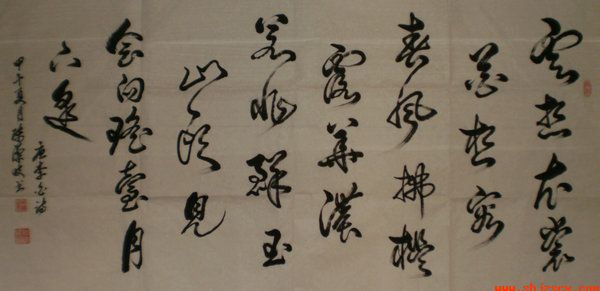 雲想衣裳
花想容
春風拂檻
露華濃
若非群玉
山頭見
會向瑤臺月
下逢
唐李白詩
甲午夏月